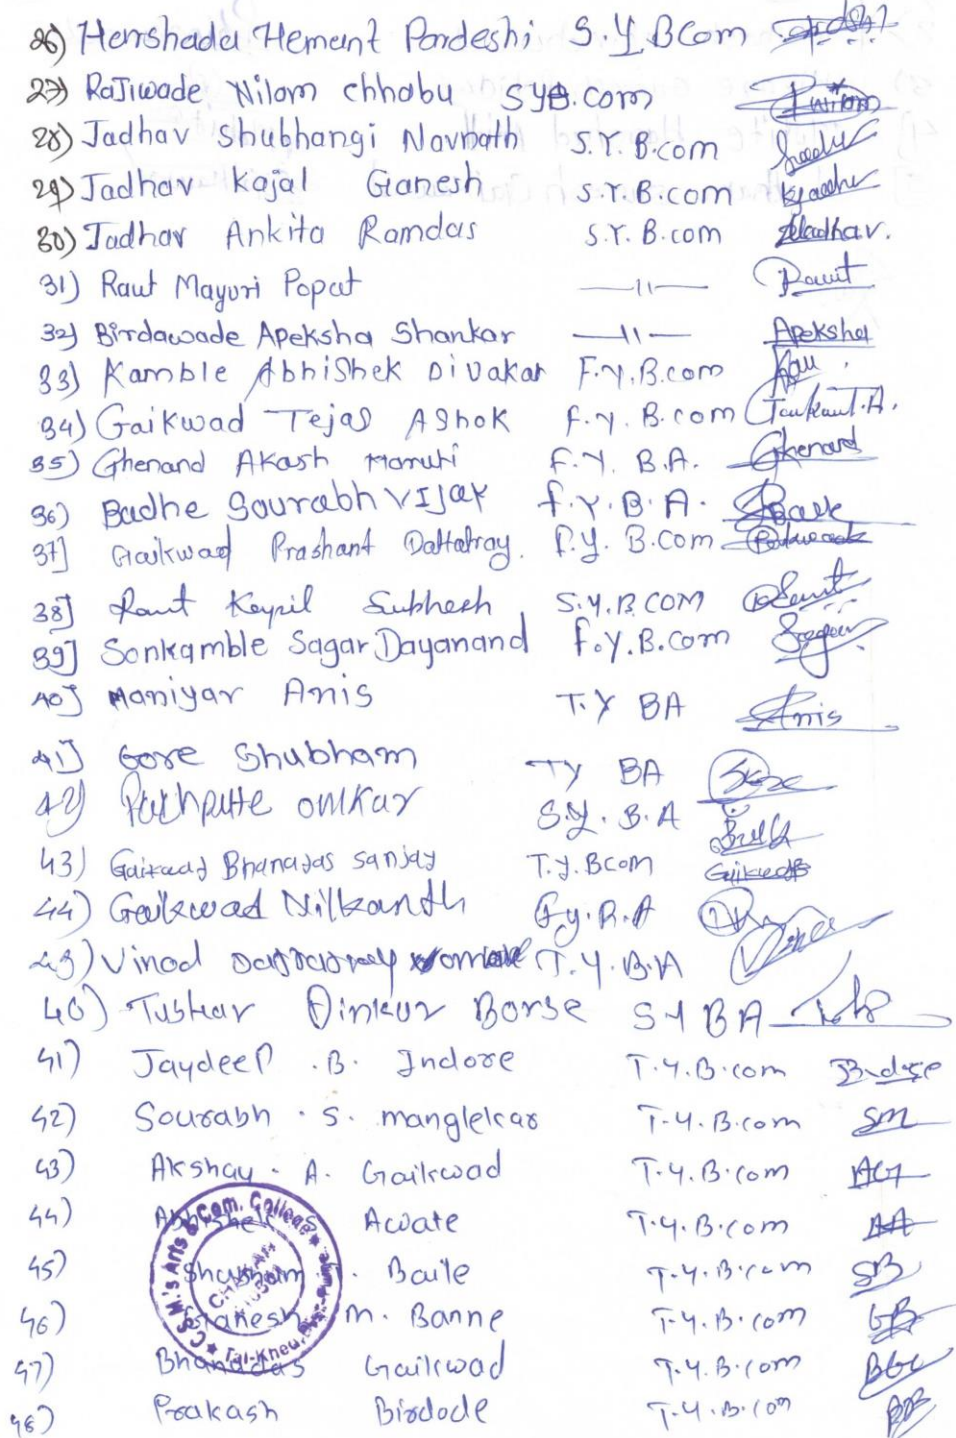 26) Harshada Hemant Pardeshi S.Y.BCom
27) Rajiwade Nilam chhabu SYB.com Nilam
28) Jadhav Shubhangi Navnath S.Y.B.com
29) Jadhav Kajal Ganesh S.Y.B.com
30) Jadhav Ankita Ramdas S.Y.B.com AJadhav.
31) Raut Mayuri Popat —11— Raut
32) Birdawade Apeksha Shankar —11— Apeksha
33) Kamble Abhishek Divakar F.Y.B.com
34) Gaikwad Tejas Ashok F.Y.B.com
35) Ghenand Akash Maruti F.Y.B.A. Ghenand
36) Badhe Sourabh Vijay F.Y.B.A.
37] Gaikwad Prashant Dattatray. F.Y.B.Com
38] Raut Subhash S.Y.B.COM
39] Sonkamble Sagar Dayanand F.Y.B.Com Sagar
40] Maniyar Anis T.Y BA Anis
41] Gore Shubham TY BA
42) Pachpute Omkar S.Y.B.A
43) Gaikwad Bhanadas Sanjay T.Y.BCom GaikwadB
44) Gaikwad Nilkanth F.y.B.A
45) Vinod T.Y.B.A
46) Tushar Dinkar Borse SYBA
41) Jaydeep .B. Indore T.Y.B.com
42) Sourabh . S. manglekar T.Y.B.com SM
43) Akshay . A. Gaikwad T.Y.B.com AG
44) Abhishek S. Awate T.Y.B.com AA
45) Shubham . Baile T.Y.B.com SB
46) Ganesh M. Banne T.Y.B.com GB
47) Bhanadas Gaikwad T.Y.B.com BG
48) Prakash Birdode T.Y.B.com
C.S.M.'s Arts & Com. College